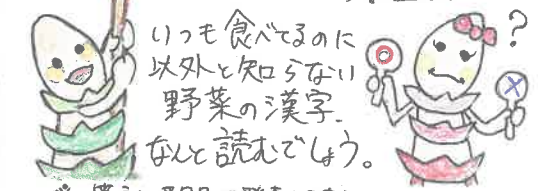 いつも食べてるのに
以外と知らない
野菜の漢字、
なんと読むでしょう。
?